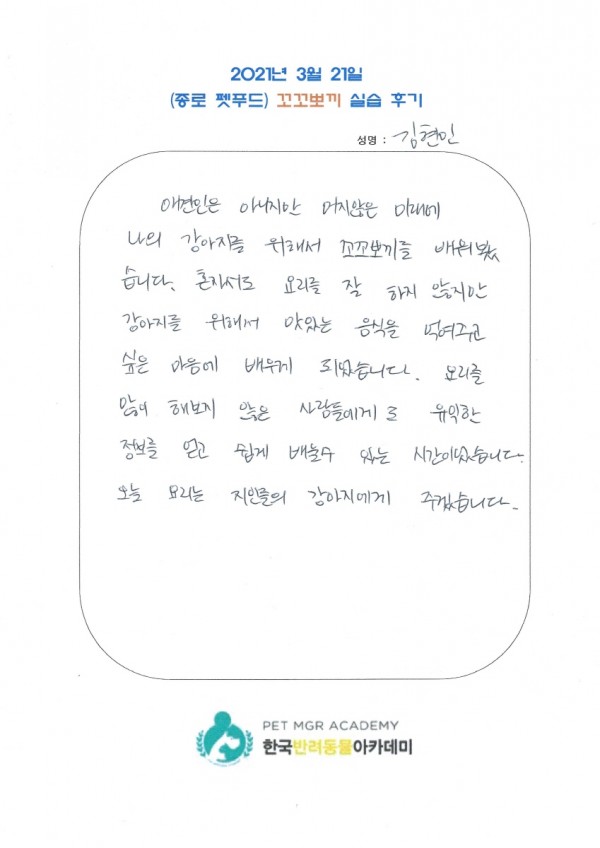 2021년 3월 21일
(종로 펫푸드) 꼬꼬뽀끼 실습 후기
성명 : 김현민
애견인은 아니지만 머지않은 미래에
나의 강아지를 위해서 꼬꼬뽀끼를 배워봤
습니다. 혼자서도 요리를 잘 하지 않지만
강아지를 위해서 맛있는 음식을 먹여주고
싶은 마음에 배우게 되었습니다. 요리를
많이 해보지 않은 사람들에게도 유익한
정보를 얻고 쉽게 배울수 있는 시간이었습니다.
오늘 요리는 지인들의 강아지에게 주겠습니다.
PET MGR ACADEMY
한국반려동물아카데미